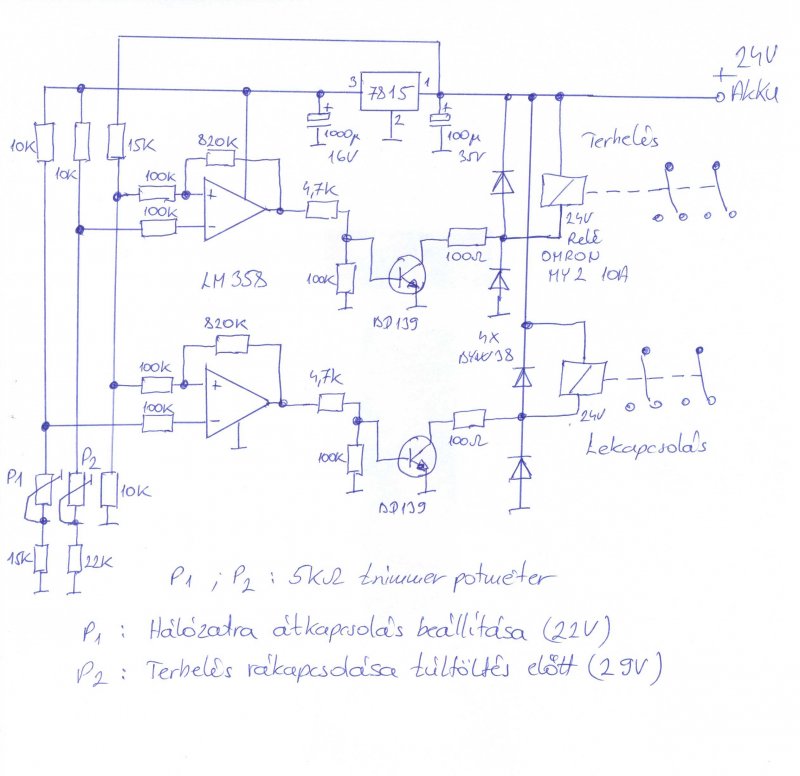 24V
+
Akku
3
7815
1
2
+
1000µ
16V
+
100µ
35V
10K
10K
15K
820K
100K
100K
+
-
4,7K
LM358
100K
BD139
100Ω
Terhelés
24V
Relé
OMRON
MY2 10A
820K
100K
100K
+
-
4,7K
100K
BD139
100Ω
4X
24V
Lekapcsolás
P1
P2
10K
15K
22K
P1 ; P2 : 5KΩ trimmer potméter
P1 : Hálózatra átkapcsolás beállítása (22V)
P2 : Terhelés rákapcsolása túltöltés előtt (29V)